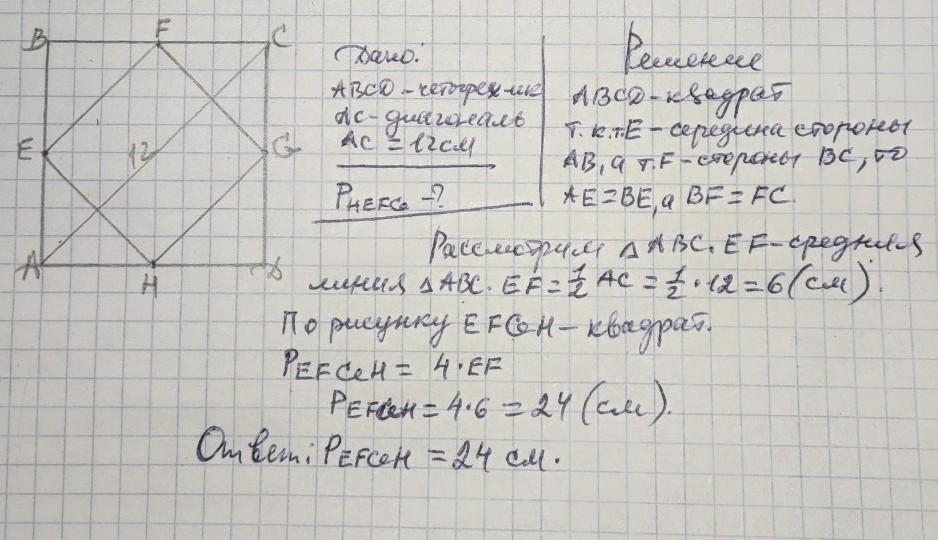 B F C
E 12 G
A H D
Дано:
ABCD - четырех-ик
AC - диагональ
AC = 12 см
PHEFG - ?
Решение
ABCD - квадрат
т.к. т.E - середина стороны
AB, а т.F - стороны BC, то
AE = BE, а BF = FC.
Рассмотрим △ABC. EF - средняя
линия △ABC. EF = 1/2 AC = 1/2 · 12 = 6 (см).
По рисунку EFGH - квадрат.
PEFGH = 4 · EF
PEFGH = 4 · 6 = 24 (см).
Ответ: PEFGH = 24 см.